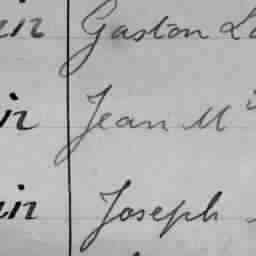 in Gaston
in Jean M
in Joseph